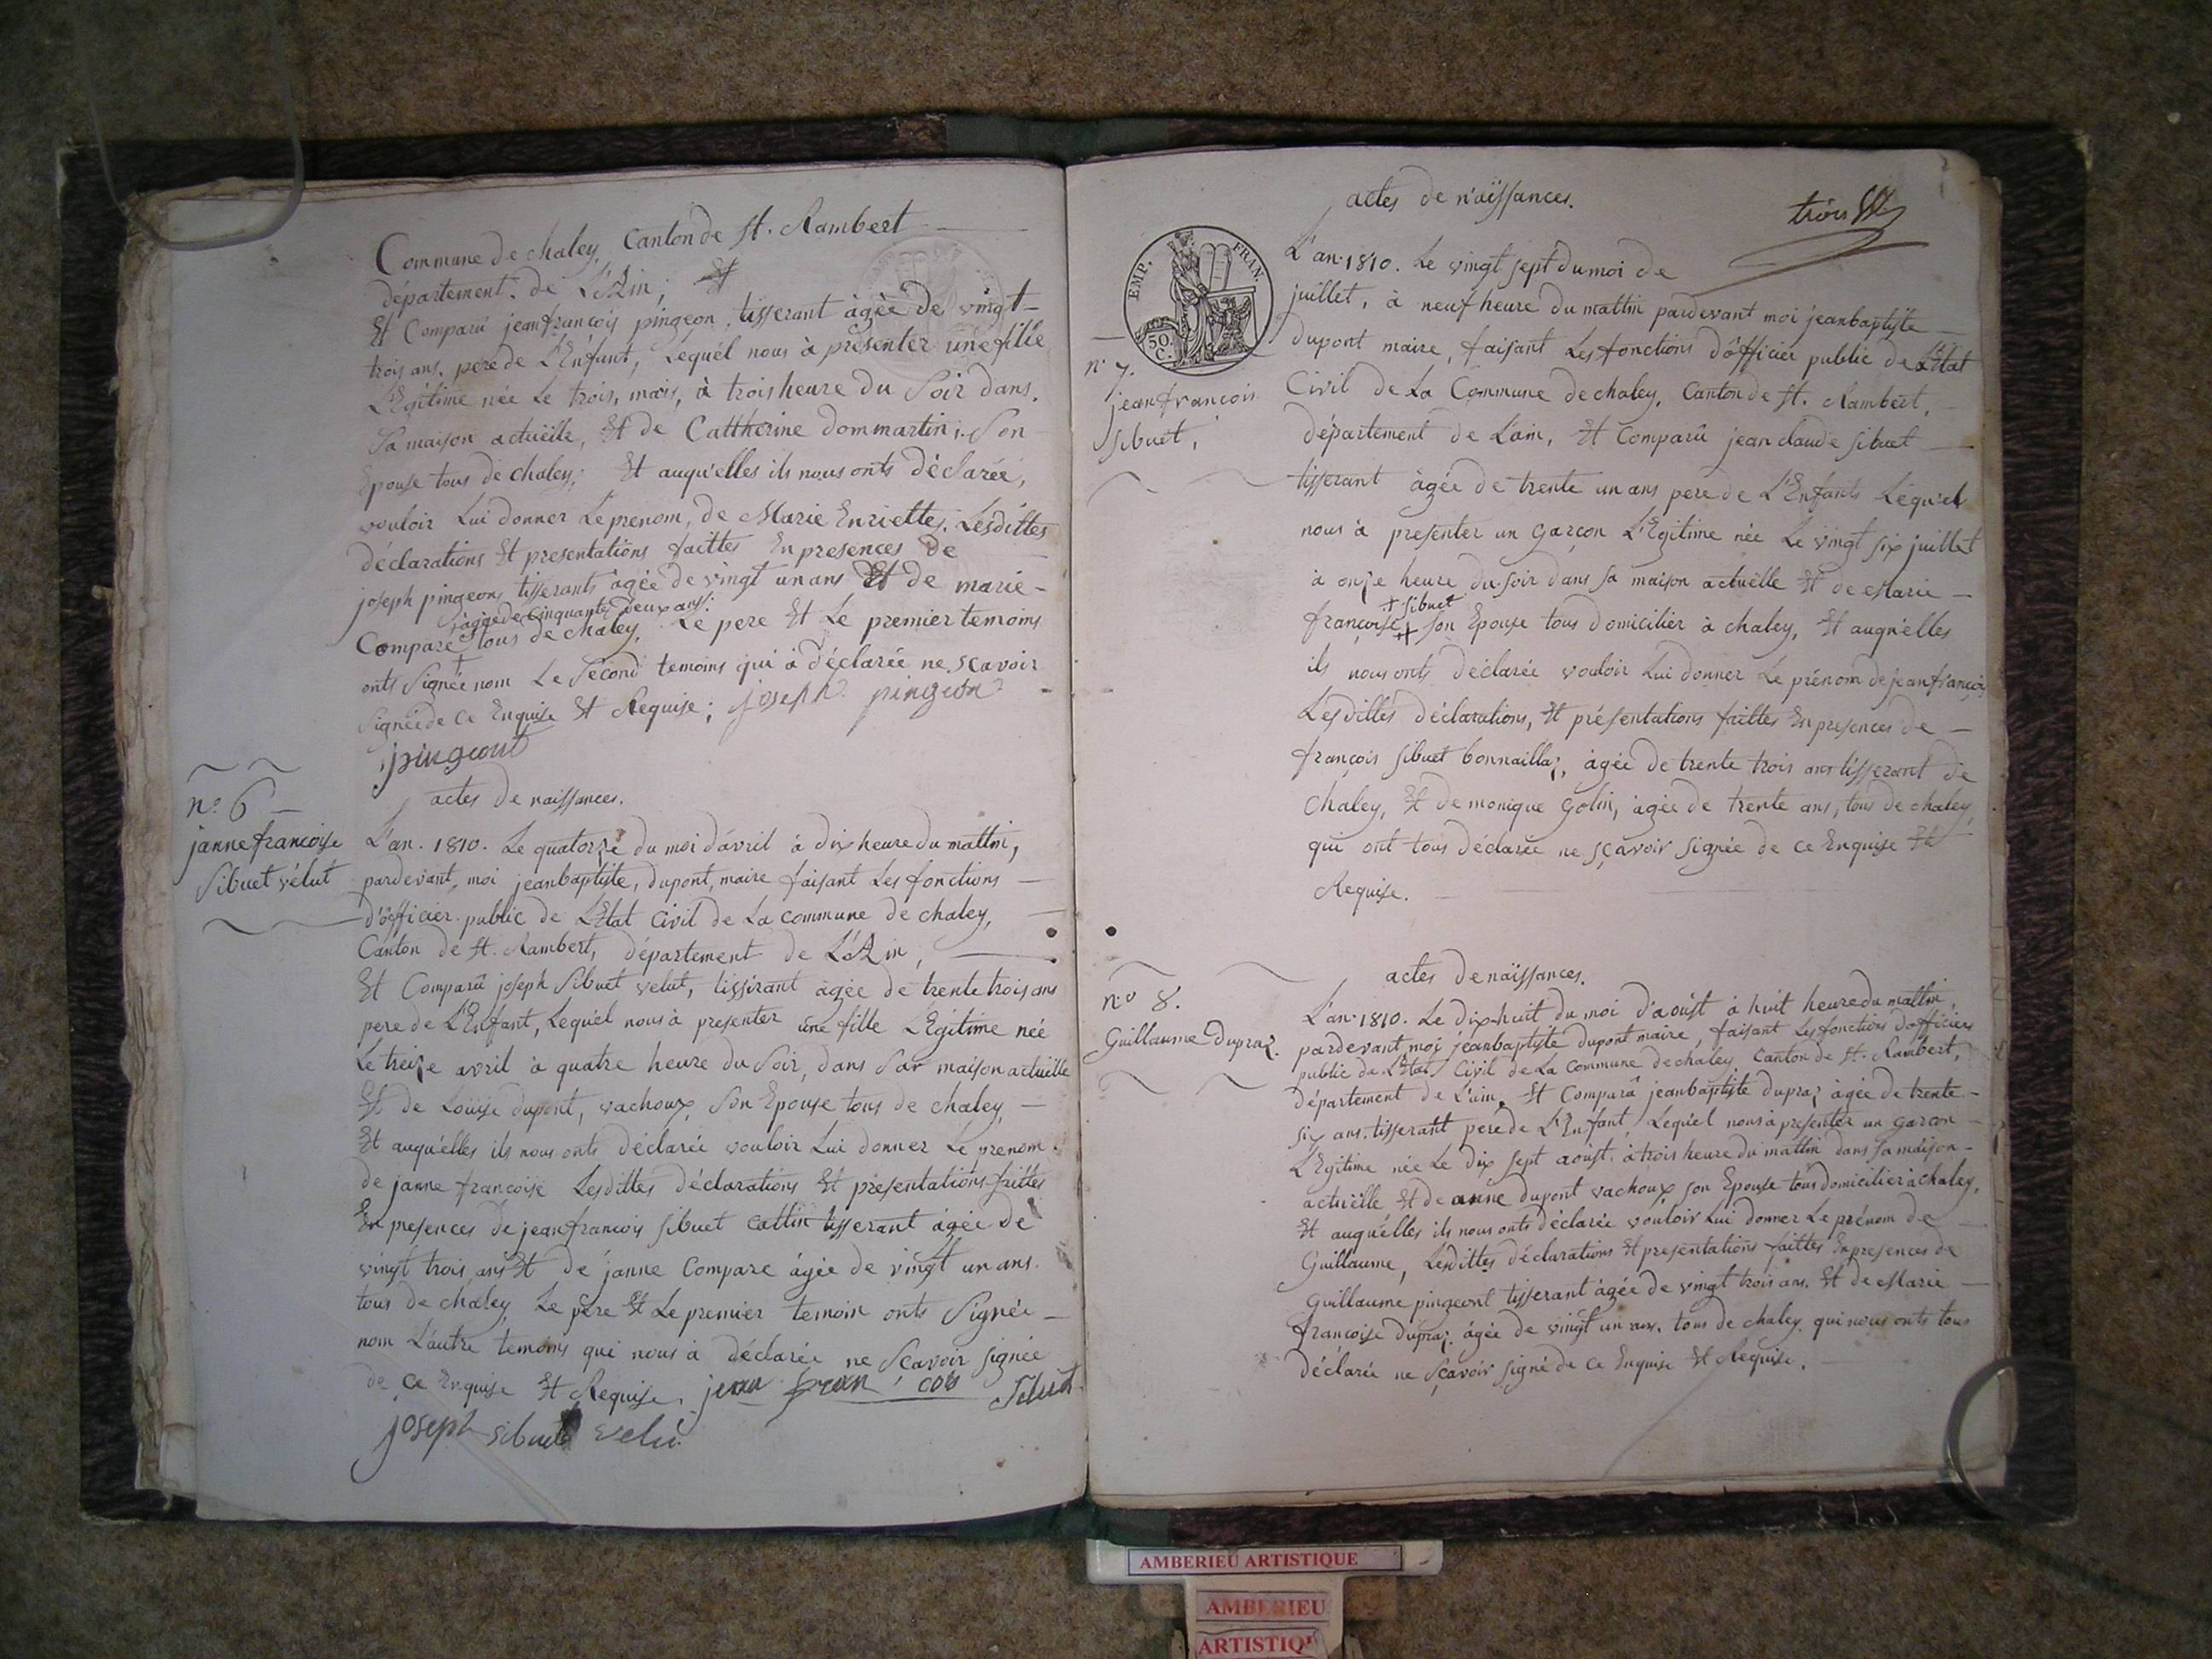 Commune de chaley, Canton de St. Rambert
département. de L'Ain; Et
Et Comparû jeanfrançois pingeon, tisserant âgèe de vingt-
trois ans. pere de L'Enfant, Lequél nous à présenter une fille
L'Egitime née Le trois, mars, à trois heure du Soir dans.
Sa maison actuëlle, Et de Cattherine dommartin; Son
Epouse tous de chaley; Et auqu'elles ils nous onts déclarée,
vouloir Lui donner Le prenom, de Marie Enriette. Lesdittes
déclarations Et presentations faittes En presences de
joseph pingeons tisserants âgée de vingt un ans Et de marie-
âgée de cinquante deux ans:
Compare tous de chaley, Le pere Et Le premier temoins
onts Signée nom Le Second temoins qui à déclarée ne sçavoir
Signée de Ce Enquise Et Requise; joseph pingeon
pingeont
n.o 6
janne françoise
Sibuet vélut
actes de naissances.
L'an. 1810. Le quatorze du moi d'avril à dix heure du mattin,
pardevant, moi jeanbaptiste, dupont, maire faisant Les fonctions
d'ôfficier public de L'Etat Civil de La Commune de chaley,
Canton de St. Rambert, département de L'Ain,
Et Comparû joseph Sibuet velut, tisserant âgée de trente trois ans
pere de L'Enfant, Lequél nous à presenter une fille L'Egitime née
Le treize avril à quatre heure du Soir, dans Sa maison actuëlle
Et de Loüise dupont, vachoux, Son Epouse tous de chaley,
Et auqu'elles ils nous onts déclarée vouloir Lui donner Le prenom.
de janne françoise Lesdittes déclarations Et présentations faittes
En presences de jeanfrancois Sibuet Cattin tisserant âgée de
vingt trois ans Et de janne Compare âgée de vingt un ans.
tous de chaley, Le père Et Le premier temoin onts Signée
nom L'autre temoins qui nous à déclarée ne Sçavoir signée
de Ce Enquise Et Requise. jean fran cois Sibuet
joseph sibuet velu
actes de naissances.
trois
EMP. FRAN.
50. C.
n.o 7.
jean françois
Sibuet,
L'an. 1810. Le vingt sept du moi de
juillet, à neuf heure du mattin pardevant moi jeanbaptiste
dupont maire, faisant Les fonctions d'ôfficier public de L'Etat
Civil de La Commune de chaley, Canton de St. Rambert,
département de L'ain, Et Comparû jean claude sibuet
tisserant âgée de trente un ans pere de L'Enfants Lequ'el
nous à presenter un Garçon L'Egitime née Le vingt six juillet
à onze heure du soir dans sa maison actuëlle Et de Marie
+ sibuet
françoise + son Epouse tous domicilier à chaley, Et auqu'elles
ils nous onts déclarée vouloir Lui donner Le prénom de jeanfrançois
Lesdittes déclarations, Et présentations faittes En presences de
françois sibuet bonnailla, âgée de trente trois ans tisserant de
chaley, Et de monique Golin, âgée de trente ans, tous de chaley,
qui ont tous déclarée ne sçavoir signée de ce Enquise Et
Requise.
n.o 8.
Guillaume Dupraz.
actes de naissances.
L'an. 1810. Le dix-huit du moi d'aoust à huit heure du mattin,
pardevant, moi jeanbaptiste dupont maire, faisant Les fonctions d'officiers
public de L'Etat Civil de La Commune de chaley, Canton de St. Rambert,
département de L'ain, Et Comparû jeanbaptiste dupraz âgée de trente-
six ans. tisserant pere de L'Enfant Lequ'el nous à présenter un garcon
L'Egitime née Le dix sept aoust. à trois heure du mattin dans sa maison-
actuëlle, Et de anne dupont vachoux son Epouse tous domicilier à chaley,
Et auqu'elles ils nous onts déclarée vouloir Lui donner Le prénom de
Guillaume, Lesdittes déclarations Et presentations faittes En presences de
Guillaume pingeont tisserant âgée de vingt trois ans. Et de Marie
françoise dupraz. âgée de vingt un ans. tous de chaley. qui nous onts tous
déclarée ne sçavoir signé de Ce Enquise Et Requise.
AMBERIEU ARTISTIQUE
AMBERIEU
ARTISTIQU